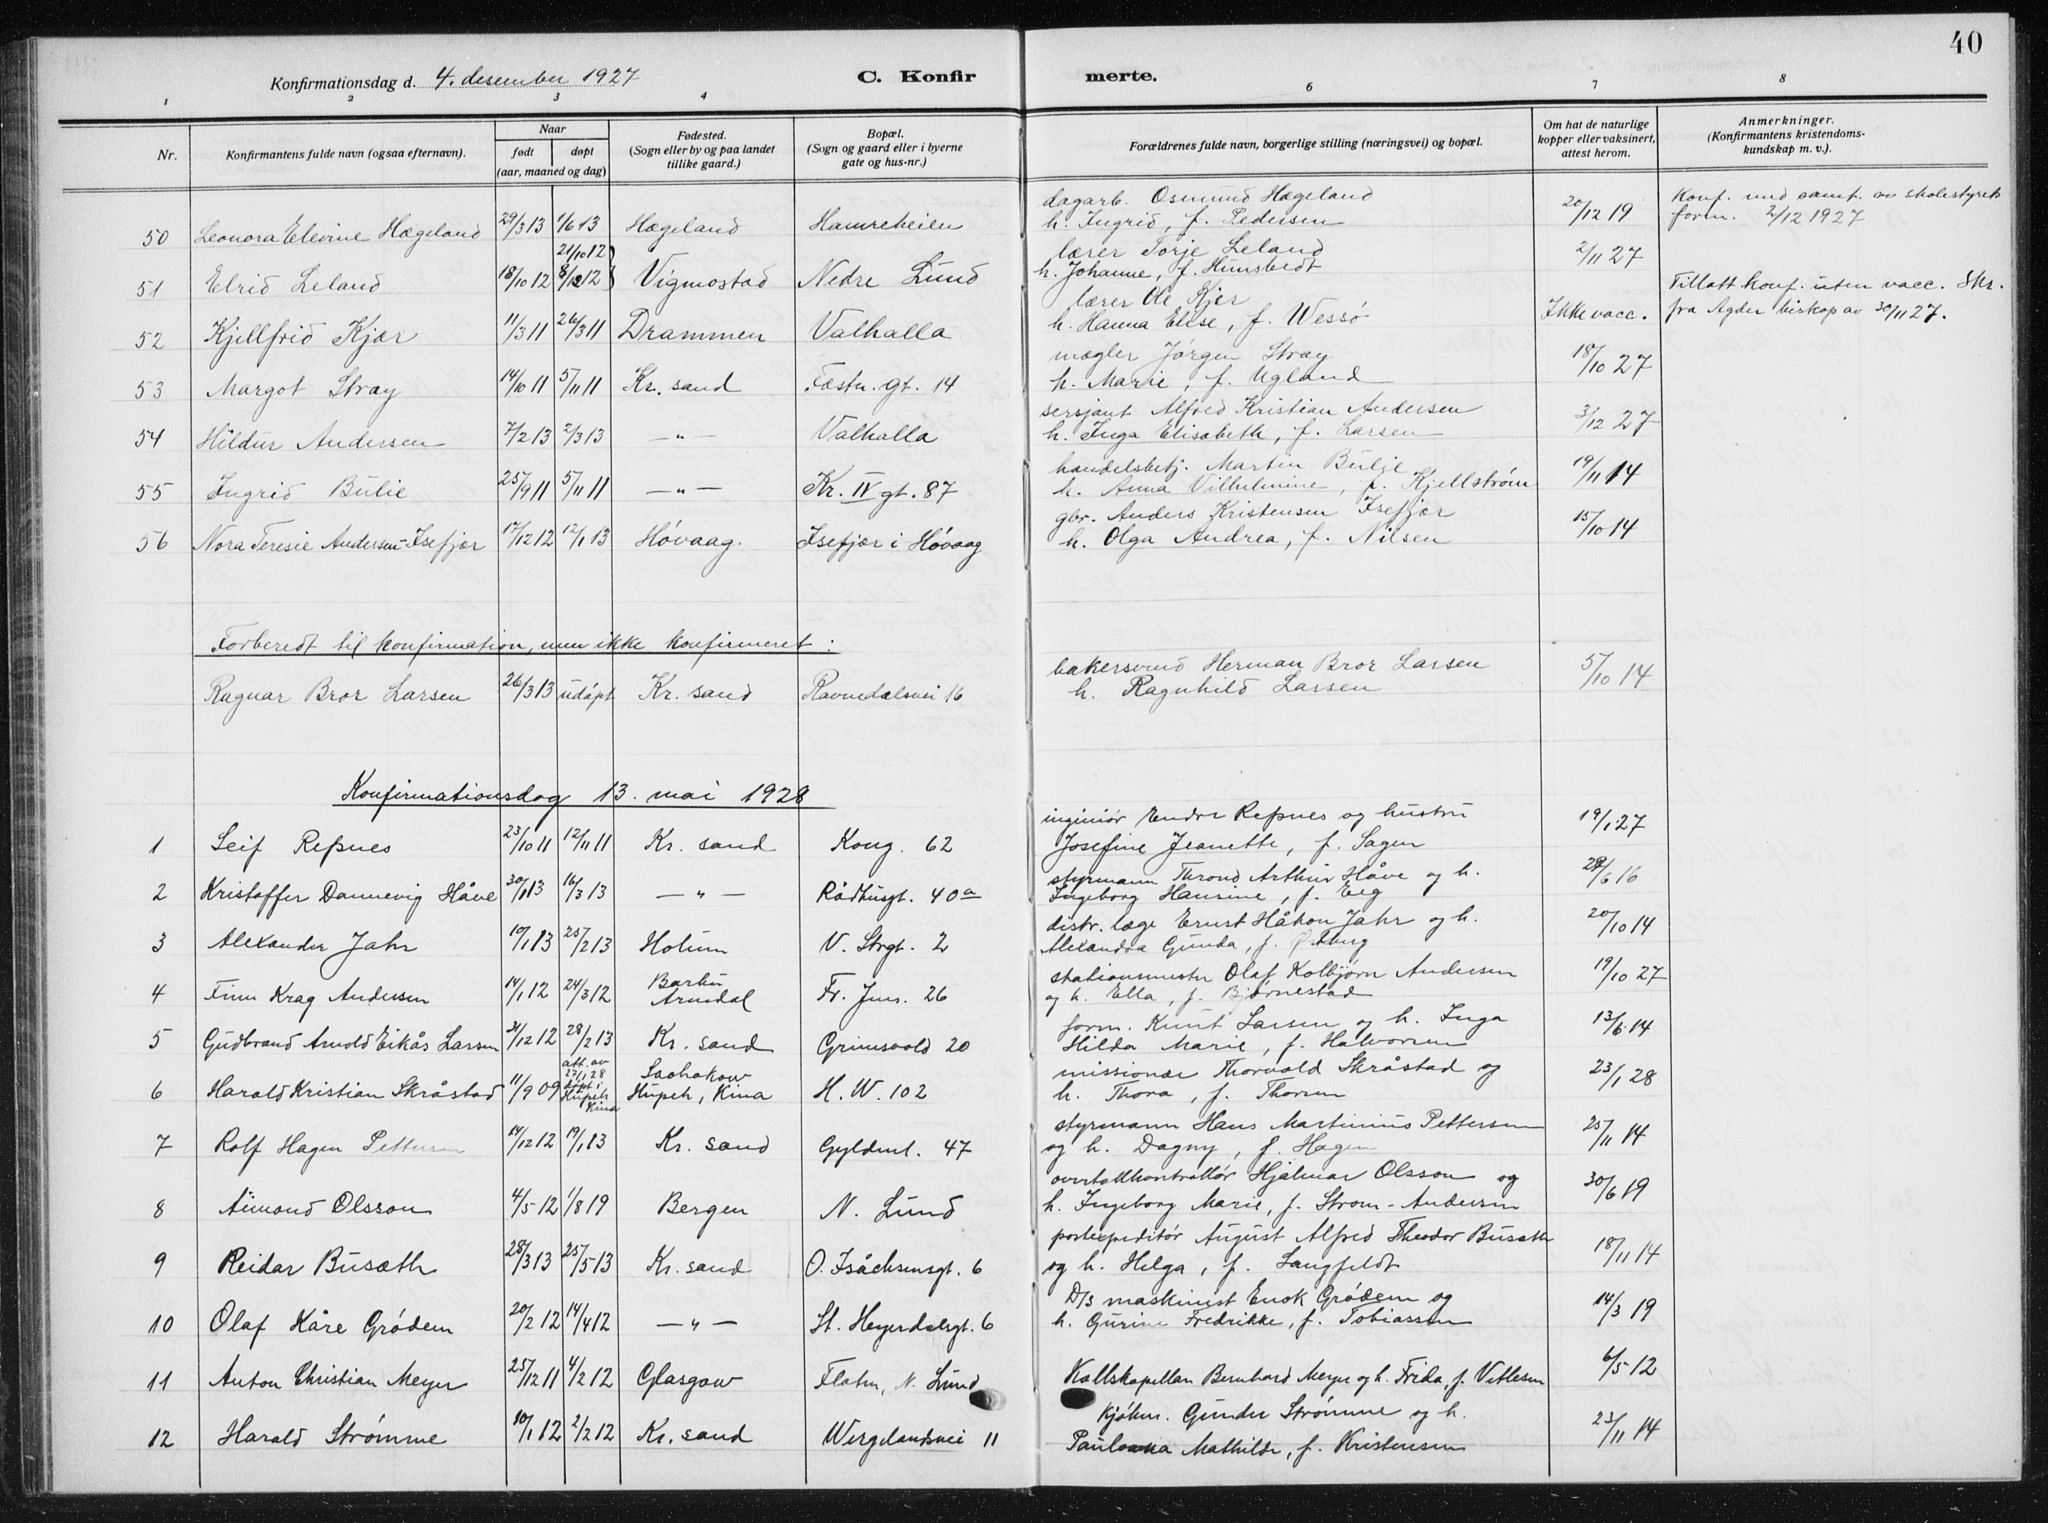 40
Konfirmationsdag d. 4. desember 1927 C. Konfirmerte.
1 2 3 4 6 7 8
Nr. Konfirmantens fulde navn (ogsaa efternavn). Naar født døpt (aar, maaned og dag) Fødested. (Sogn eller by og paa landet tillike gaard.) Bopæl. (Sogn og gaard eller i byerne gate og hus-nr.) Forældrenes fulde navn, borgerlige stilling (næringsvei) og bopæl. Om hat de naturlige kopper eller vaksinert, attest herom. Anmerkninger. (Konfirmantens kristendoms-kundskap m. v.).
50 Leonora Elevine Hægeland 29/3 13 1/6 13 Hægeland Hamreheien dagarb. Osmund Hægeland h. Ingrid, f. Pedersen 20/12 19 Konf. med samt. av skolestyrets form. 2/12 1927
51 Elrid Leland 18/10 12 21/10 12 8/12 12 Vigmostad Nedre Lund lærer Torje Leland h. Johanne, f. Hunsbedt 2/11 27
52 Kjellfrid Kjær 11/3 11 26/3 11 Drammen Valhalla lærer Ole Kjær h. Hanna Elise, f. Wessø Ikke vacc. Tillatt konf. uten vacc. Skr. fra Agder biskop av 30/11 27.
53 Margot Stray 14/10 11 5/11 11 Kr. sand Fæstn. gt. 14 mægler Jørgen Stray h. Marie, f. Ugland 18/10 27
54 Hildur Andersen 7/2 13 2/3 13 — " — Valhalla sersjant Alfred Kristian Andersen h. Inga Elisabeth, f. Larsen 3/12 27
55 Ingrid Bulie 25/9 11 5/11 11 — " — Kr. IV gt. 87 handelsbetj. Martin Bulie h. Anna Vilhelmine, f. Kjellstrøm 19/11 14
56 Nora Teresie Andersen-Isefjær 17/12 12 12/1 13 Høvaag. Isefjær i Høvaag gbr. Anders Kristensen Isefjær h. Olga Andrea, f. Nilsen 15/10 14
Forberedt til konfirmation, men ikke konfirmeret:
Ragnar Bror Larsen 26/3 13 udøpt Kr. sand Ravnedalsvei 16 bakersvend Herman Bror Larsen h. Ragnhild Larsen 5/10 14
Konfirmationsdag 13. mai 1928
1 Leif Repnes 23/10 11 12/11 11 Kr. sand Kong. 62 ingeniør Endre Repnes og hustru Josefine Jeanette, f. Sagen 19/1 27
2 Kristoffer Dannevig Håve 30/1 13 16/3 13 — " — Rådhusgt. 40a styrmann Trond Arthur Håve og h. Ingeborg Hansine, f. Eeg 28/6 16
3 Alexander Jahr 10/1 13 25/2 13 Holum V. Strgt. 2 distr. læge Ernst Håkon Jahr og h. Alexandra Gunda, f. 20/10 14
4 Finn Krag Andersen 14/1 12 24/3 12 Barbu Arendal Fr. Jms. 26 stationsmester Olaf Kolbjørn Andersen og h. Ella, f. Bjørnestad 19/10 27
5 Gudbrand Arnold Eikås Larsen 21/12 12 28/2 13 Kr. sand Grimsvold 20 form. Knut Larsen og h. Inga Hilda Marie, f. Halvorsen 13/6 14
6 Harald Kristian Skråstad 11/9 09 att. av 27/1 28 døpt i Hupeh Kina Laohokow Hupeh, Kina H. W. 102 missionær Thorvald Skråstad og h. Thora, f. Thorsen 23/1 28
7 Rolf Hagen Pettersen 14/12 12 19/1 13 Kr. sand Gyldenl. 47 styrmann Hans Martinius Pettersen og h. Dagny, f. Hagen 25/11 14
8 Aimond Olsson 4/5 12 1/8 19 Bergen N. Lund Hjalmar Olsson og h. Ingeborg Marie, f. Strom-Andersen 30/6 19
9 Reidar Busæth 28/3 13 25/5 13 Kr. sand O. Isåchsensgt. 6 postexpeditør August Alfred Theodor Busæth og h. Helga, f. Langfeldt 18/11 14
10 Olaf Kåre Grødem 20/2 12 14/4 12 — " — St. Heyerdalsgt. 6 D/S maskinist Enok Grødem og h. Gurine Fredrikke, f. Tobiassen 14/3 19
11 Anton Christian Meyer 25/12 11 4/2 12 Glasgow Flaten, N. Lund Kallskapellan Bernhard Meyer og h. Frida, f. Vetlesen 6/5 12
12 Harald Strømme 10/1 12 2/2 12 Kr. sand Wergelandsvei 11 kjøbm. Gunder Strømme og h. Mathilde, f. Kristensen 23/11 14